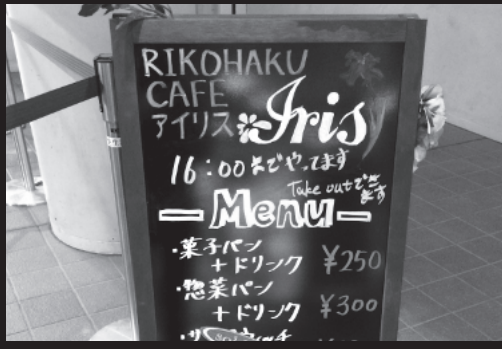 RIKOHAKU
CAFE
アイリス Iris
16:00までやってます
Take outできます
Menu
・菓子パン
+ドリンク ¥250
・惣菜パン
+ドリンク ¥300